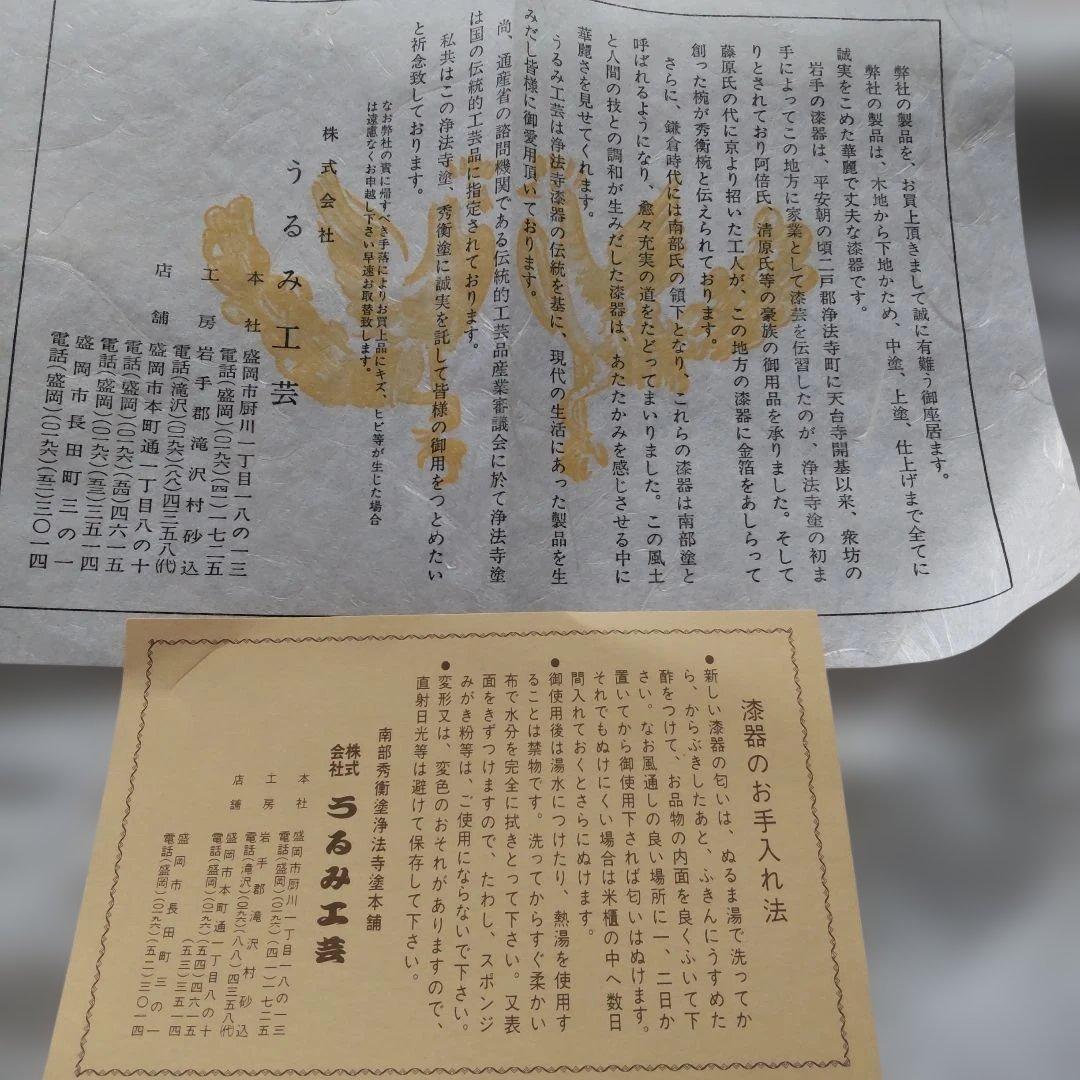 弊社の製品を、お買上頂きまして誠に有難う御座居ます。
弊社の製品は、木地から下地かため、中塗、上塗、仕上げまで全てに
誠実をこめた華麗で丈夫な漆器です。
岩手の漆器は、平安朝の頃二戸郡浄法寺町に天台寺開基以来、衆坊の
手によってこの地方に家業として漆芸を伝習したのが、浄法寺塗の初ま
りとされており阿倍氏、清原氏等の豪族の御用品を承りました。そして
藤原氏の代に京より招いた工人が、この地方の漆器に金箔をあしらって
創った椀が秀衡椀と伝えられております。
さらに、鎌倉時代には南部氏の領下となり、これらの漆器は南部塗と
呼ばれるようになり、愈々充実の道をたどってまいりました。この風土
と人間の技との調和が生みだした漆器は、あたたかみを感じさせる中に
華麗さを見せてくれます。
うるみ工芸は浄法寺漆器の伝統を基に、現代の生活にあった製品を生
みだし皆様に御愛用頂いております。
尚、通産省の諮問機関である伝統的工芸品産業審議会に於て浄法寺塗
は国の伝統的工芸品に指定されております。
私共はこの浄法寺塗、秀衡塗に誠実を託して皆様の御用をつとめたい
と祈念致しております。
なお弊社の責に帰すべき手落によりお買上品にキズ、ヒビ等が生じた場合
は遠慮なくお申越し下さい早速お取替致します。
株式会社
うるみ工芸
本社 盛岡市厨川一丁目一八の一三
電話(盛岡)(〇一九六)(四一)一七二五
工房 岩手郡滝沢村砂込
電話(滝沢)(〇一九六)(八八)四三五八(代)
店舗 盛岡市本町通一丁目八の十
電話(盛岡)(〇一九六)(五四)四六一五
電話(盛岡)(〇一九六)(五三)三五一四
盛岡市長田町三の一
電話(盛岡)(〇一九六)(五二)三〇一四
漆器のお手入れ法
●新しい漆器の匂いは、ぬるま湯で洗ってか
ら、からぶきしたあと、ふきんにうすめた
酢をつけて、お品物の内面を良くふいて下
さい。なお風通しの良い場所に一、二日か
置いてから御使用下されば匂いはぬけます。
それでもぬけにくい場合は米櫃の中へ数日
間入れておくとさらにぬけます。
●御使用後は湯水につけたり、熱湯を使用す
ることは禁物です。洗ってからすぐ柔かい
布で水分を完全に拭きとって下さい。又表
面をきずつけますので、たわし、スポンジ
みがき粉等は、ご使用にならないで下さい。
●変形又は、変色のおそれがありますので、
直射日光等は避けて保存して下さい。
南部秀衡塗浄法寺塗本舗
株式会社 うるみ工芸
本社 盛岡市厨川一丁目一八の一三
電話(盛岡)(〇一九六)(四一)一七二五
工房 岩手郡滝沢村砂込
電話(滝沢)(〇一九六)(八八)四三五八(代)
店舗 盛岡市本町通一丁目八の十
電話(盛岡)(〇一九六)(五四)四六一五
(五三)三五一四
盛岡市長田町三の一
電話(盛岡)(〇一九六)(五二)三〇一四